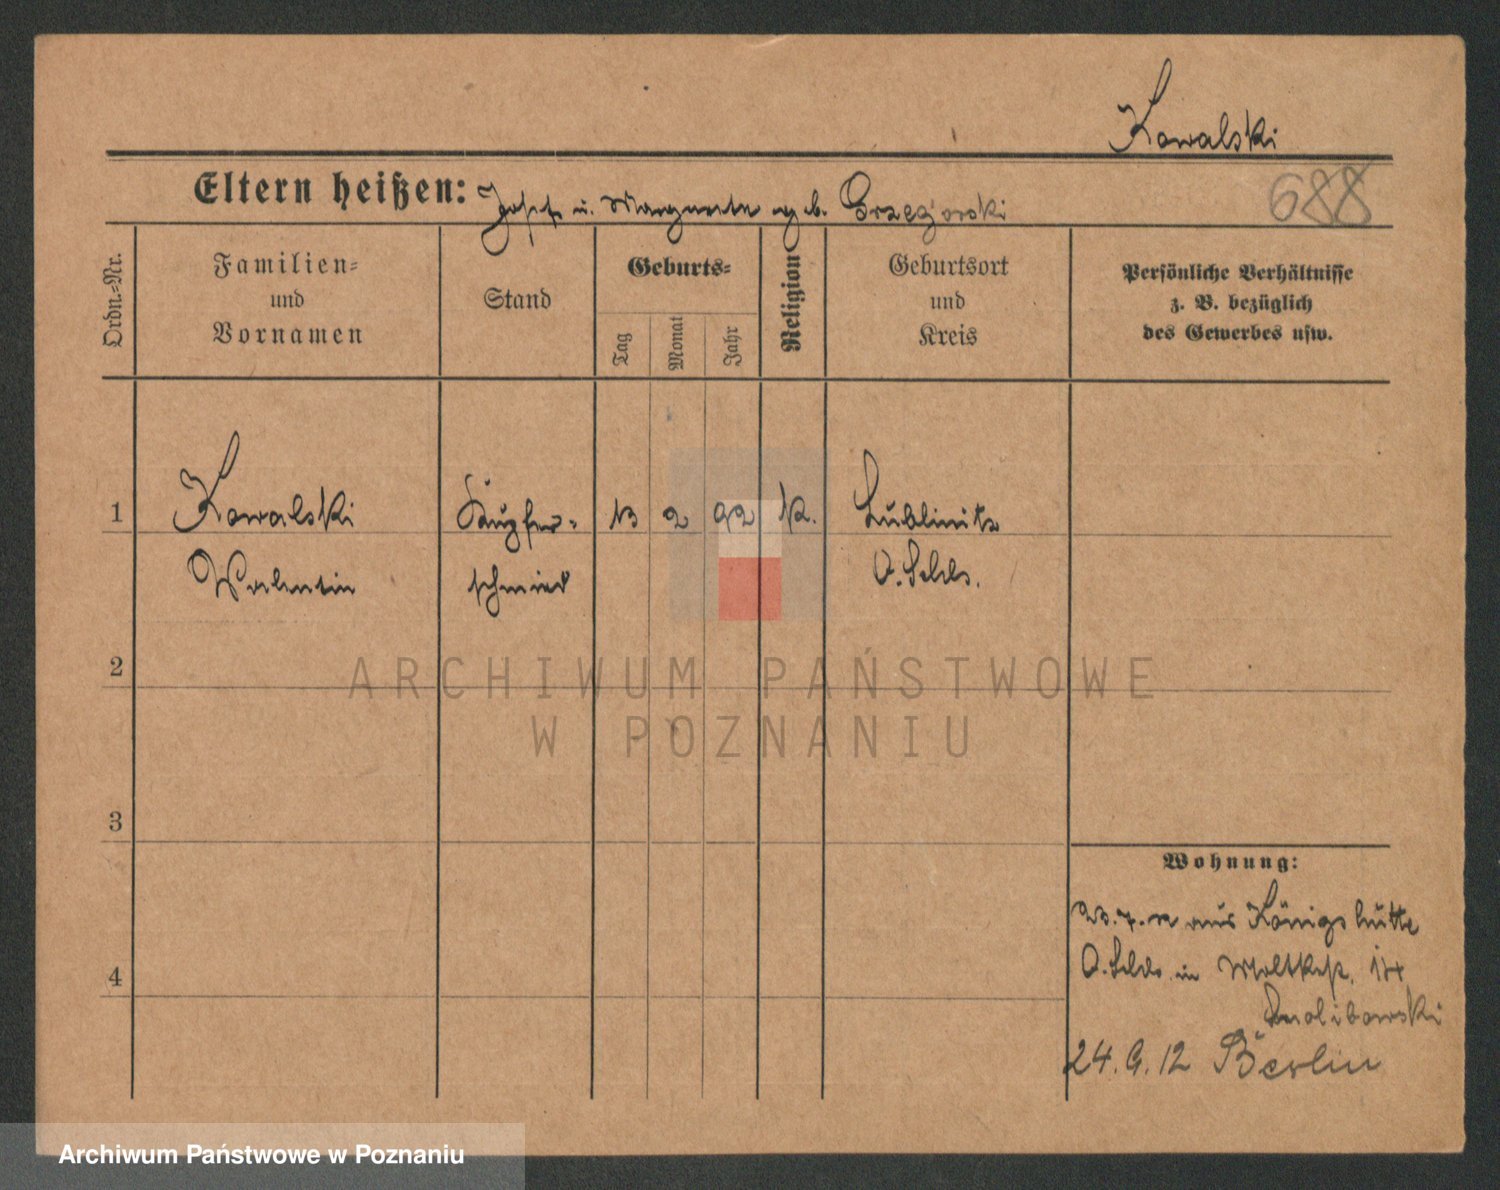 Kowalski
Eltern heißen: Josef u. Margarete geb. Grzegorski
688
Ordn.-Nr.
Familien-
und
Vornamen
Stand
Geburts-
Tag
Monat
Jahr
Religion
Geburtsort
und
Kreis
Persönliche Verhältnisse
z. B. bezüglich
des Gewerbes usw.
1
Kowalski
Valentin
Kupfer-
schmied
13
2
92
k.
Lublinitz
O. Schls.
2
ARCHIWUM PAŃSTWOWE
W POZNANIU
3
Wohnung:
aus Königshütte
4
O. Schls. in Moltkestr.
24. 9. 12 Berlin
Archiwum Państwowe w Poznaniu